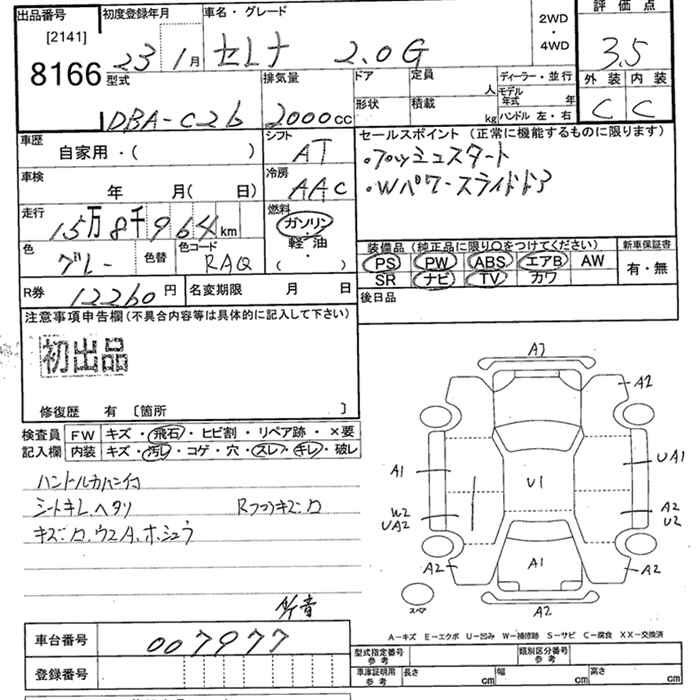 出品番号 初度登録年月 車名・グレード 2WD・4WD 評価点
[2141]
8166 23 1月 セレナ 2.0G 3.5
型式 排気量 ドア 定員 人 ディーラー・並行 外装 内装
形状 積載 kg モデル年式 年
DBA-C26 2000cc ハンドル 左・右 C C
車歴 自家用・( ) シフト AT セールスポイント(正常に機能するものに限ります)
・プッシュスタート
車検 年 月( 日) 冷房 AAC ・Wパワースライドドア
走行 15万8千964km 燃料 ガソリン・軽油・( )
色 グレー 色替 色コード RAQ 装備品(純正品に限り○をつけてください) 新車保証書
PS PW ABS エアB AW 有・無
SR ナビ TV カワ
R券 12260円 名変期限 月 日 後日品
注意事項申告欄(不具合内容等は具体的に記入して下さい)
初出品
修復歴 有 〔箇所 〕
検査員 FW キズ・飛石・ヒビ割・リペア跡・×要
記入欄 内装 キズ・汚レ・コゲ・穴・スレ・キレ・破レ
シートキレ、ヘタリ
A3
A2
A1 U1 UA1
W2 A2
UA2 U2
A2 A1 A2
スペア A2
A-キズ E-エクボ U-凹み W-補修跡 S-サビ C-腐食 XX-交換済
車台番号 007977
登録番号
型式指定番号 参考 類別区分番号 参考
車庫証明用 参考 長さ cm 幅 cm 高さ cm